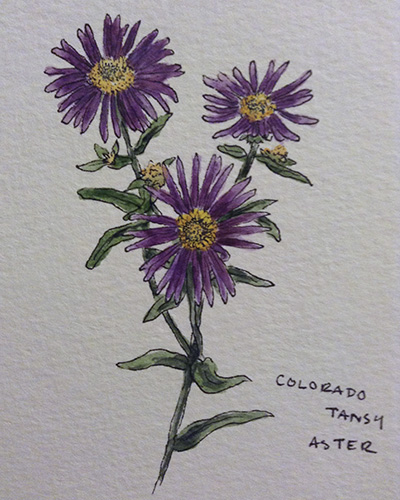 COLORADO
TANSY
ASTER